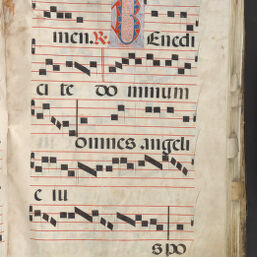 men. R. Benedi
ci te do minum
omnes angeli
e iu
spo